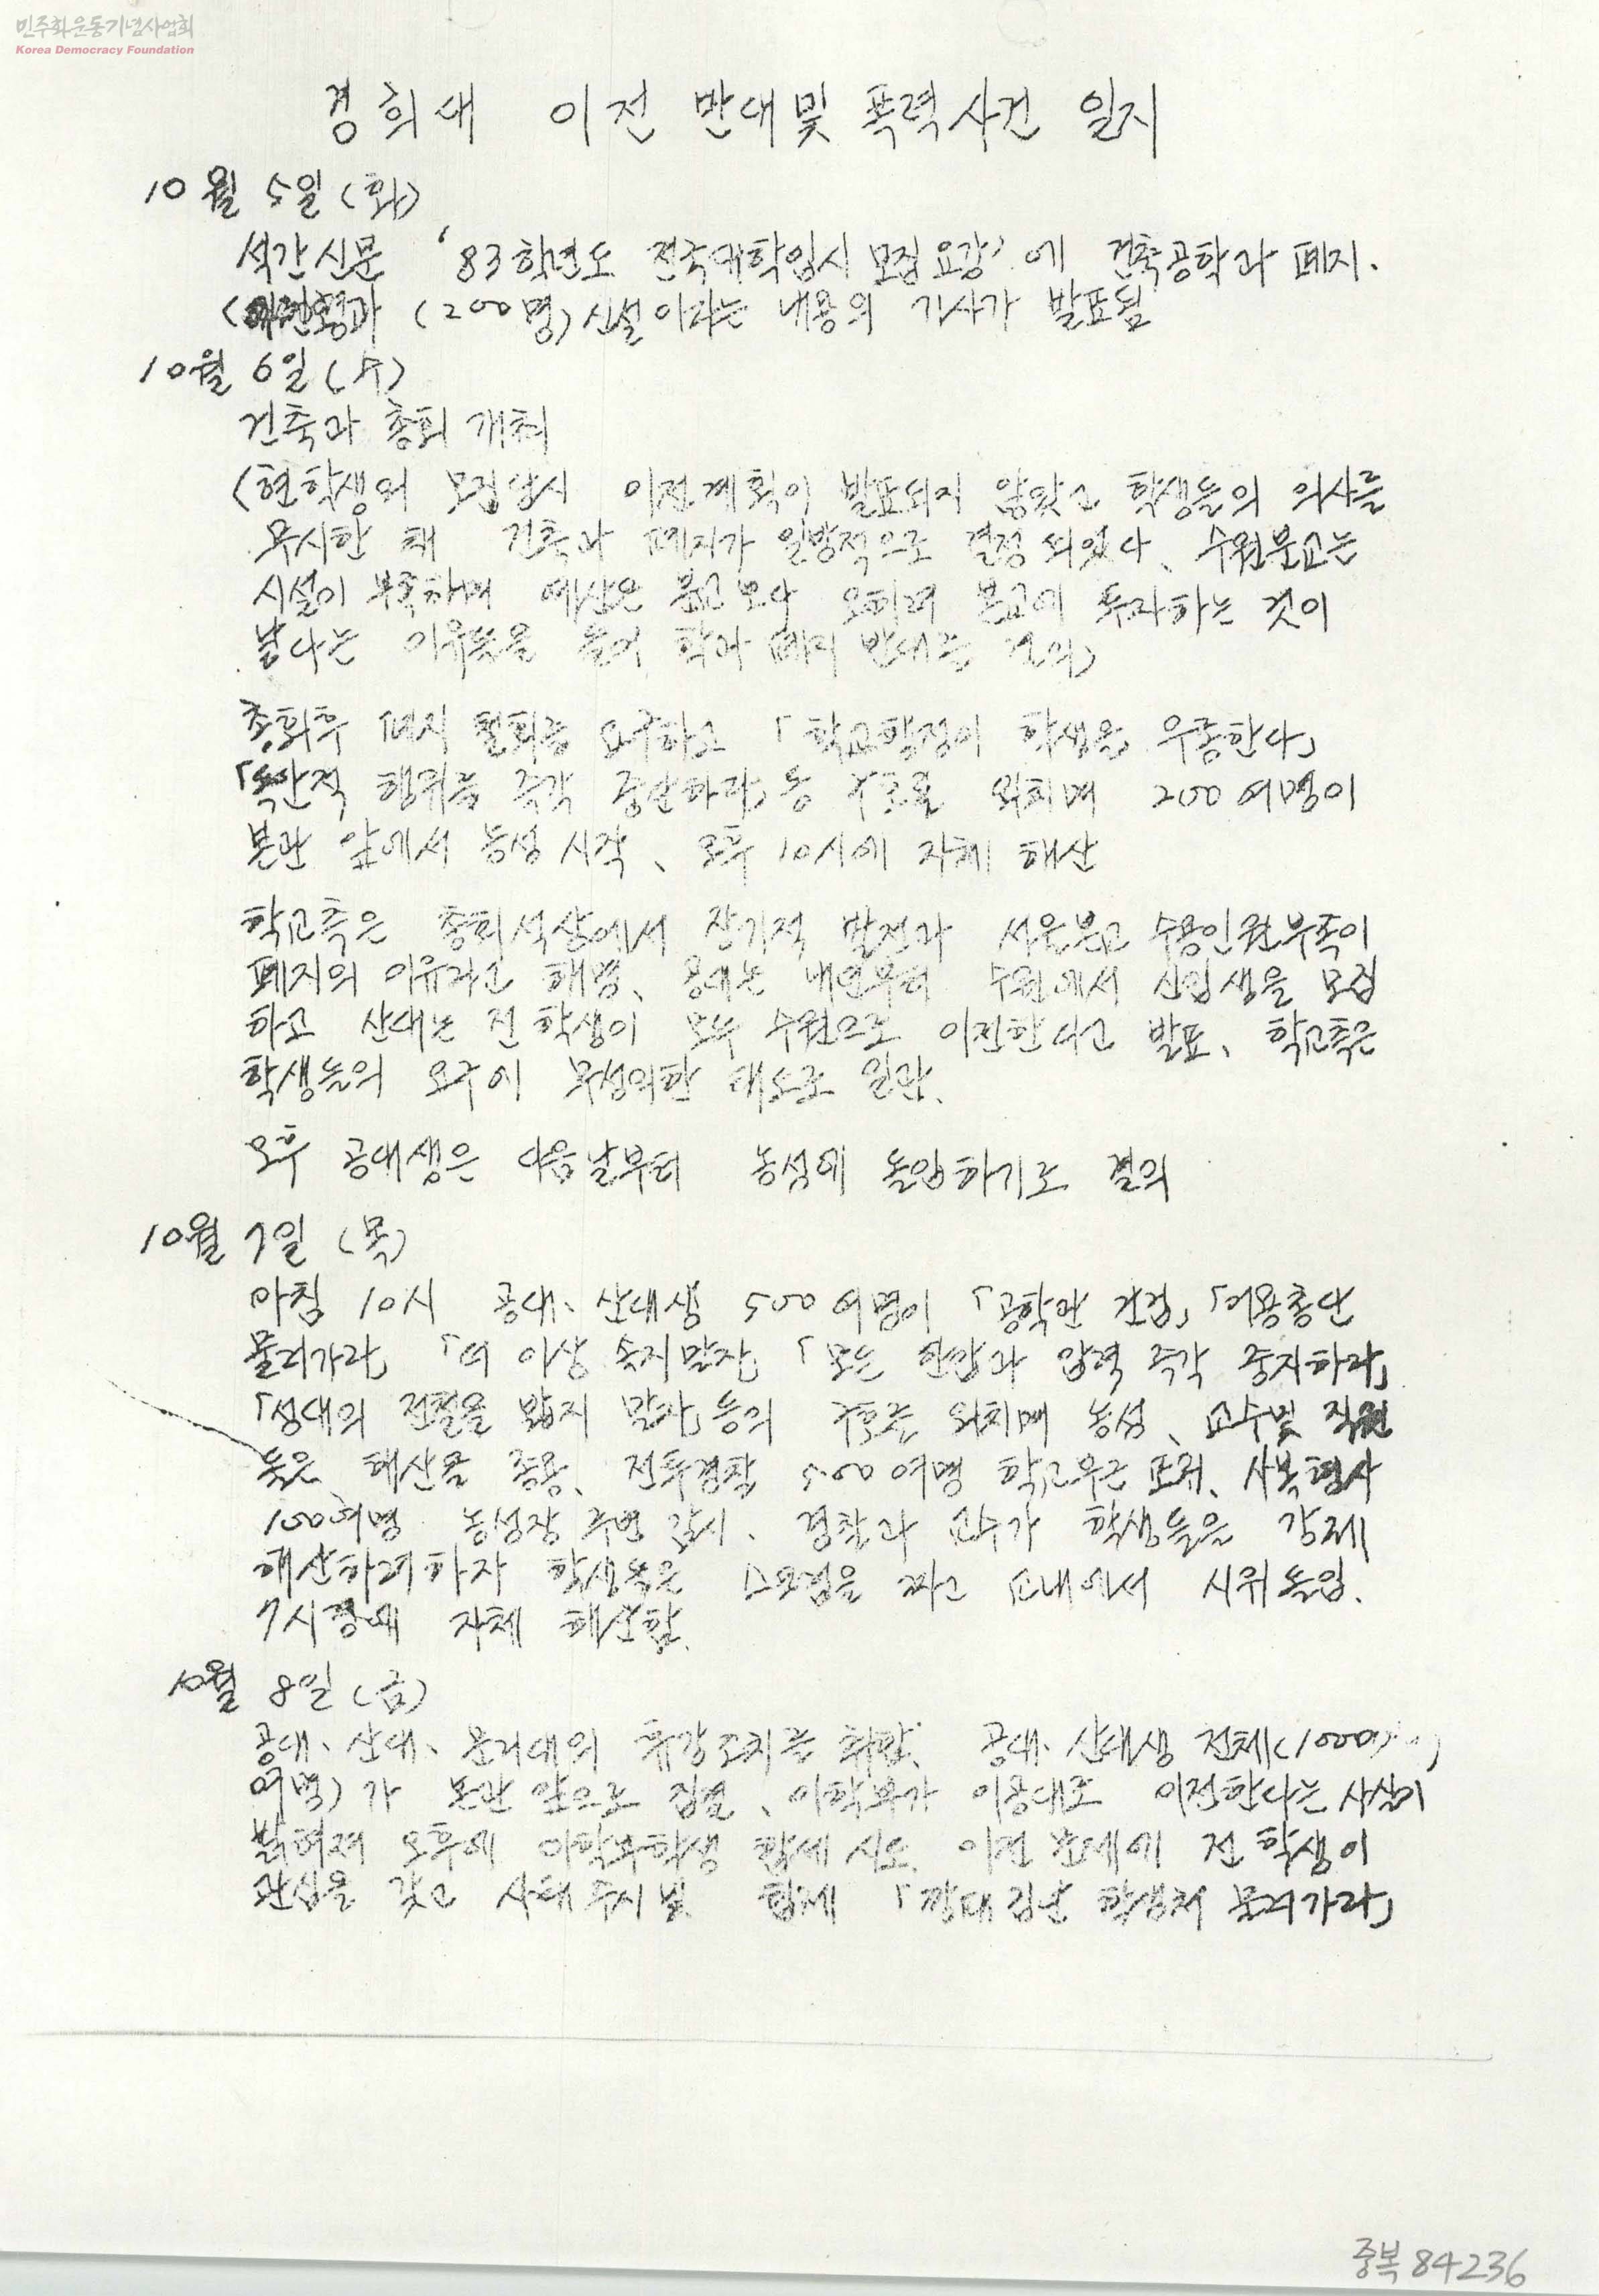 민주화운동기념사업회
Korea Democracy Foundation
경희대 이전 반대및 폭력사건 일지
10월 5일 (화)
석간신문 '83학년도 전국대학입시 모집요강'에 건축공학과 폐지.
(200명) 신설이라는 내용의 기사가 발표됨
10월 6일 (수)
건축과 총회 개최
(현학생의 모집당시 이전계획이 발표되지 않았고 학생들의 의사를
무시한 채 건축과 폐지가 일방적으로 결정되었다、 수원분교는
시설이 부족하며 예산은 분교보다 오히려 본교에 투자하는 것이
낳다는 이유들을 들어 학과 폐지 반대를 결의)
총회후 폐지 철회를 요구하고 「학교행정이 학생을 우롱한다」
「독단적 행위를 즉각 중단하라」등 구호를 외치며 200여명이
본관 앞에서 농성 시작、 오후 10시에 자체 해산
학교측은 총회석상에서 장기적 발전과 서울본교 수용인원부족이
폐지의 이유라고 해명、 공대는 내년부터 수원에서 신입생을 모집
하고 산대는 전 학생이 모두 수원으로 이전한다고 발표、 학교측은
학생들의 요구에 무성의한 태도로 일관、
오후 공대생은 다음날부터 농성에 돌입하기로 결의
10월 7일 (목)
아침 10시 공대、산대생 500여명이 「공학관 건립」「어용총단
물러가라」 「더 이상 속지말자」 「모든 탄압과 압력 즉각 중지하라」
「성대의 전철을 밟지 말자」등의 구호를 외치며 농성、 교수및 직원
들은 해산을 종용、 전투경찰 500여명 학교부근 포위、 사복형사
100여명 농성장 주변 감시、 경찰과 교수가 학생들을 강제
해산하려하자 학생들은 스크럼을 짜고 교내에서 시위돌입.
7시경에 자체 해산함.
10월 8일 (금)
공대、산대、문리대의 휴강조치를 취함. 공대、산대생 전체(1000
여명)가 본관 앞으로 집결、 이학부가 이공대로 이전한다는 사실이
밝혀져 오후에 이학부학생 합세 시도. 이전 문제에 전 학생이
관심을 갖고 사태주시 및 합세 「깡패집단 학생처 물러가라」
중복 84236